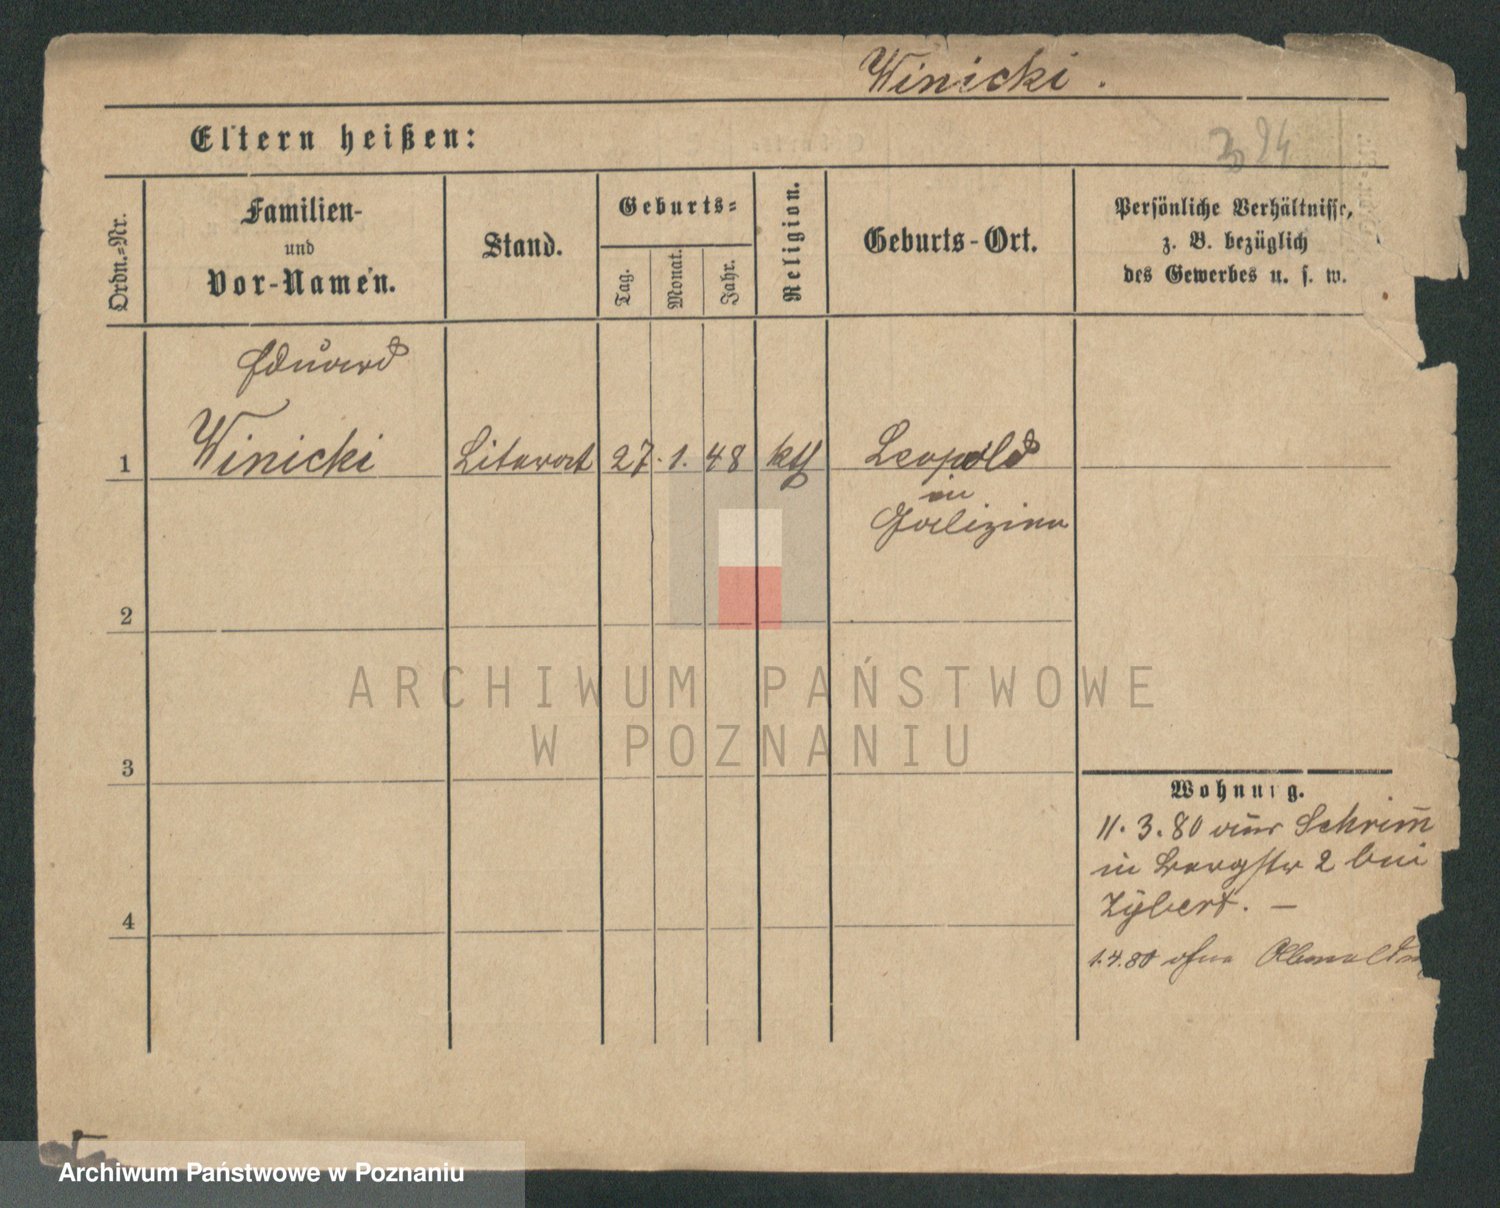 Winicki.
Eltern heißen:
394
Ordn.-Nr.
Familien-
und
Vor-Namen.
Stand.
Geburts-
Tag.
Monat.
Jahr.
Religion.
Geburts-Ort.
Persönliche Verhältnisse,
z. B. bezüglich
des Gewerbes u. s. w.
Eduard
1 Winicki Literat 27. 1. 48 kth Leopold
in
Galizien
2
3
4
Wohnung.
11. 3. 80 aus Schrimm
in Bergstr 2 bei
Zybert. —
1.4.80 ohne Abmeldung
ARCHIWUM PAŃSTWOWE
W POZNANIU
Archiwum Państwowe w Poznaniu